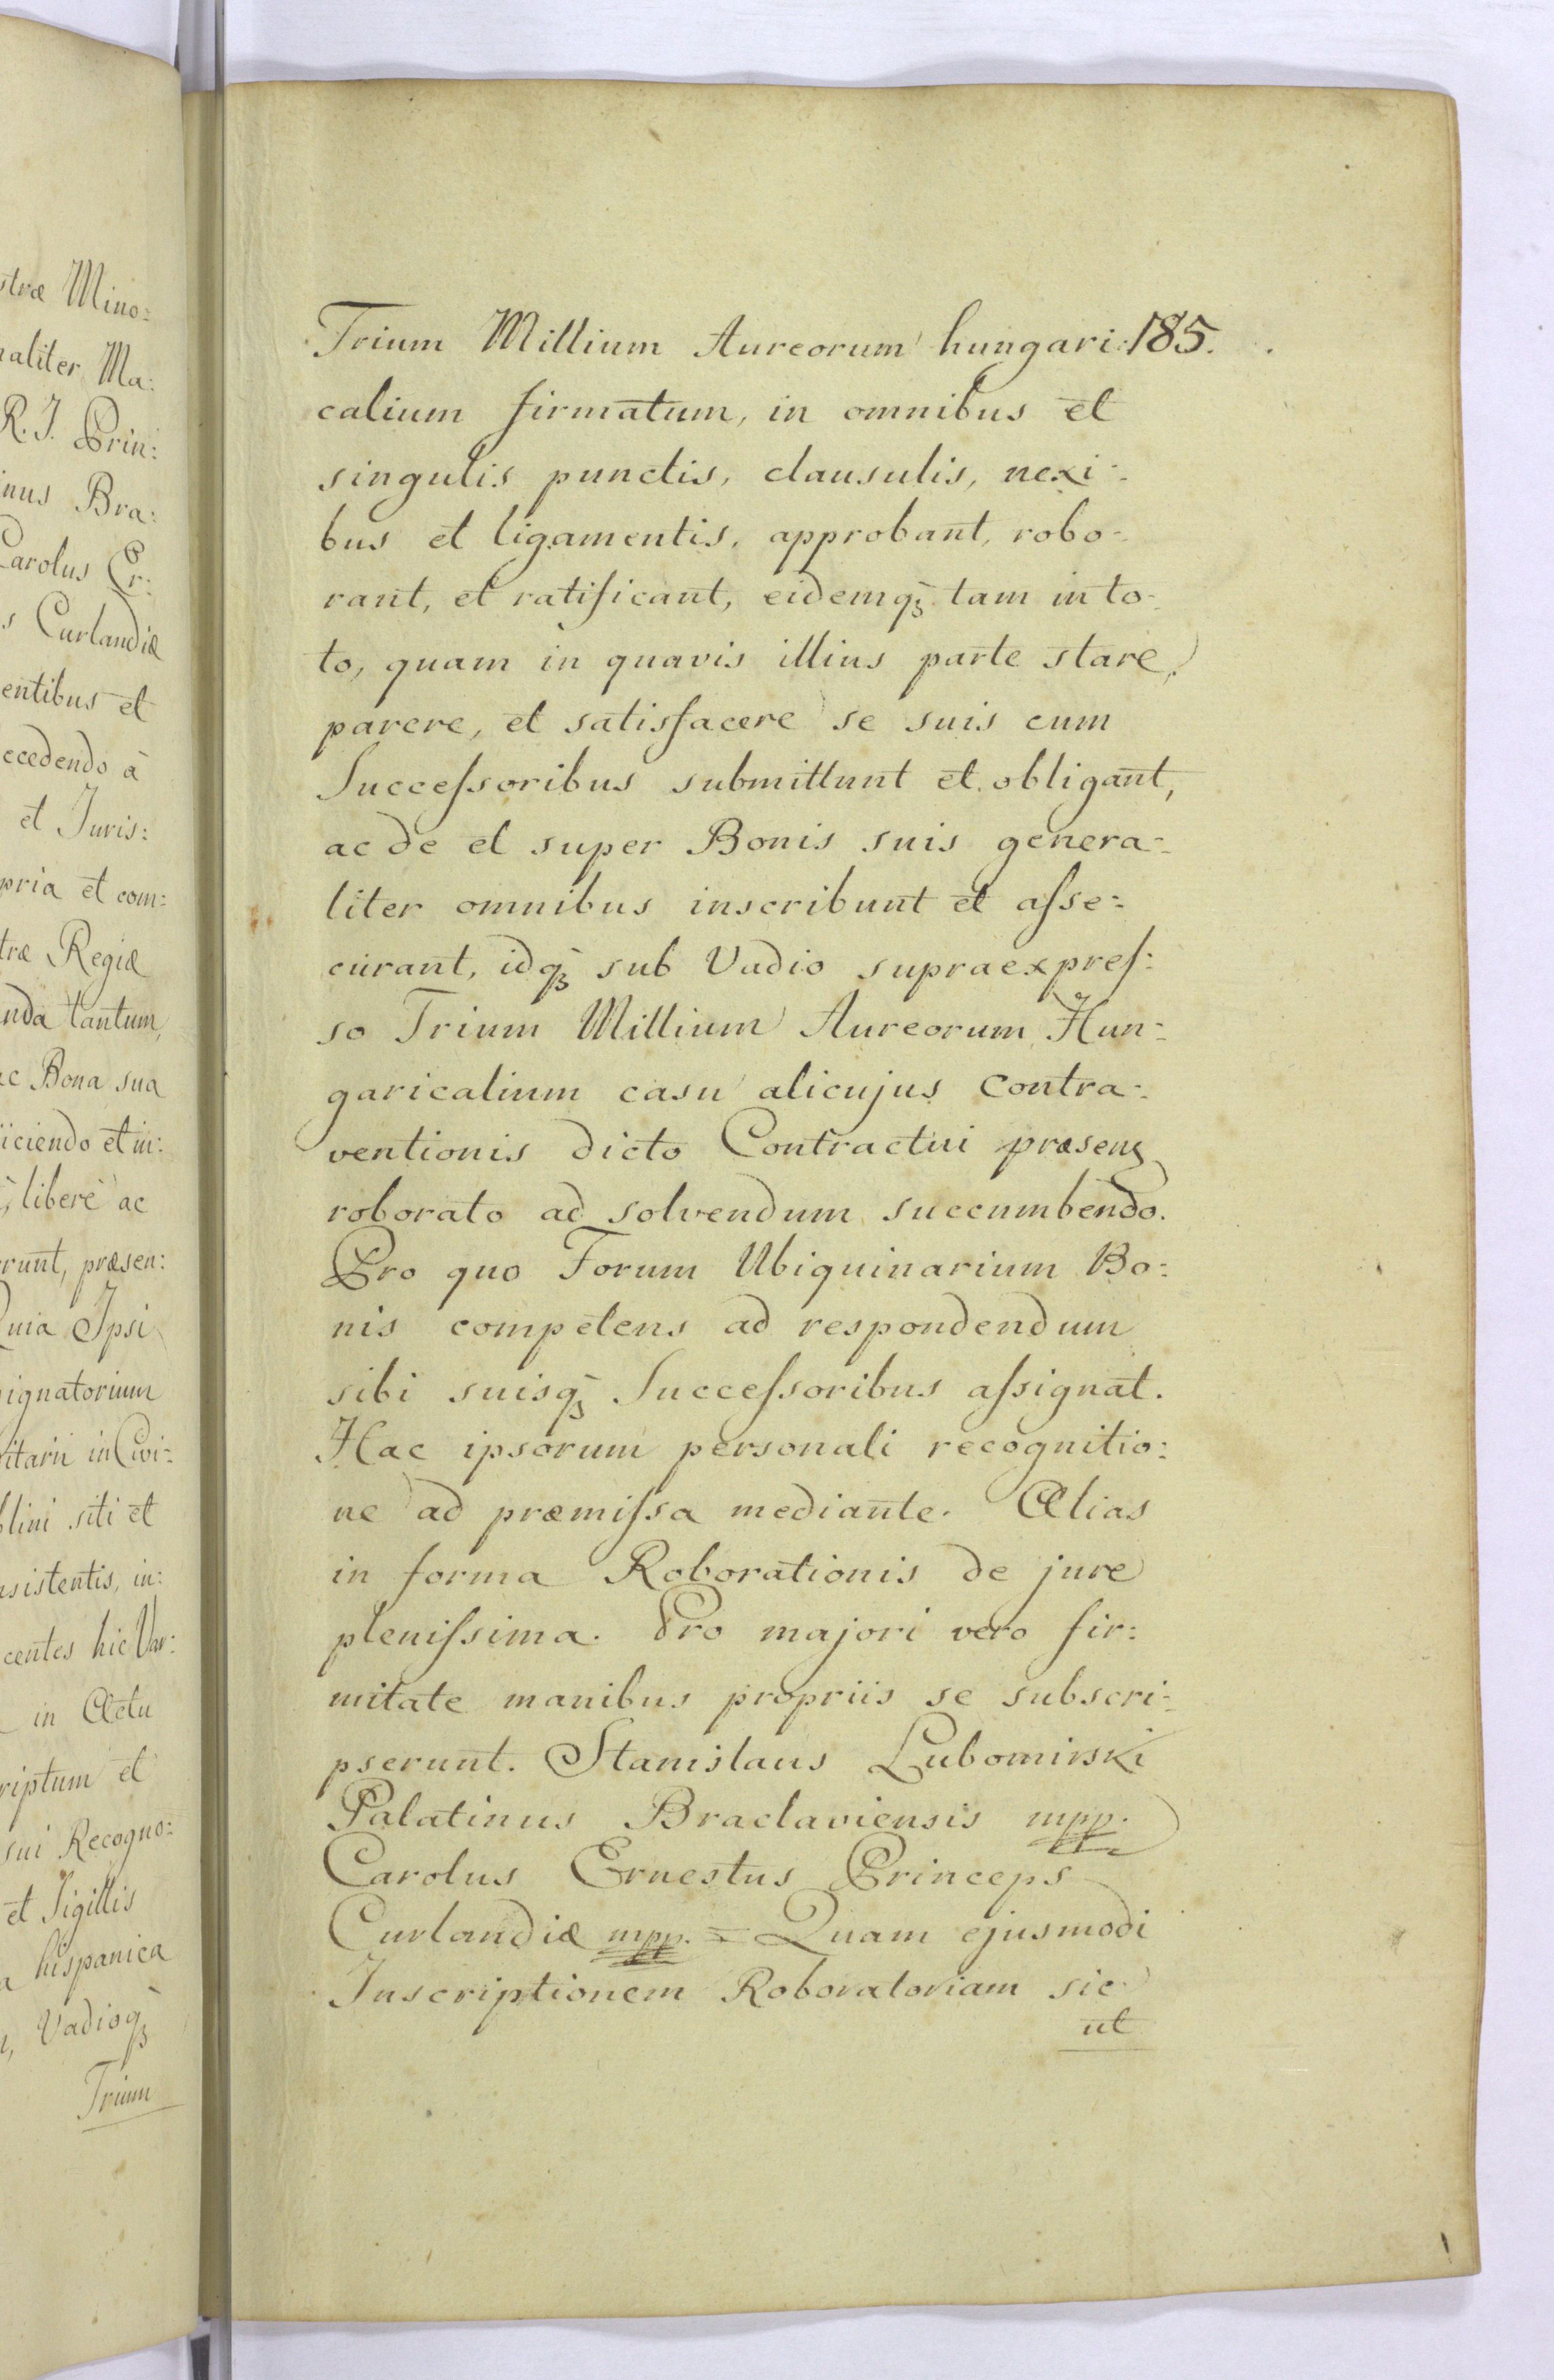 stræ Mino:
naliter Ma:
R. J. Prin:
inus Bra:
Carolus Er:
s Curlandiæ
entibus et
ecedendo à
et Juris:
pria et com:
træ Regiæ
nda tantum,
ac Bona sua
iiciendo et in:
liberè ac
erunt, præsen:
Quia Ipsi
signatorium
vitarii in Civi:
blini siti et
nsistentis, in:
centes hic Var:
in Actu
riptum et
sui Recogno:
et Sigillis
a hispanica
Vadioq꜕
Trium
Trium Millium Aureorum hungari: 185.
calium firmatum, in omnibus et
singulis punctis, clausulis, nexi:
bus et ligamentis, approbant, robo:
rant, et ratificant, eidemq꜕ tam in to:
to, quam in quavis illius parte stare,
parere, et satisfacere se suis cum
Succeſsoribus submittunt et obligant,
ac de et super Bonis suis genera:
liter omnibus inscribunt et aſse:
curant, idq꜕ sub Vadio supraexpreſ:
so Trium Millium Aureorum Hun:
garicalium casu alicujus contra:
ventionis dicto Contractui præsens
roborato ad solvendum succumbendo.
Pro quo Forum Ubiquinarium Bo:
nis competens ad respondendum
sibi suisq꜕ Succeſsoribus aſsignat.
Hac ipsorum personali recognitio:
ne ad præmiſsa mediante. Alias
in forma Roborationis de jure
pleniſsima. Pro majori vero fir:
mitate manibus propriis se subscri:
pserunt. Stanislaus Lubomirski
Palatinus Braclaviensis mpp.
Carolus Ernestus Princeps
Curlandiæ mpp. = Quam ejusmodi
Inscriptionem Roboratoriam sic
ut